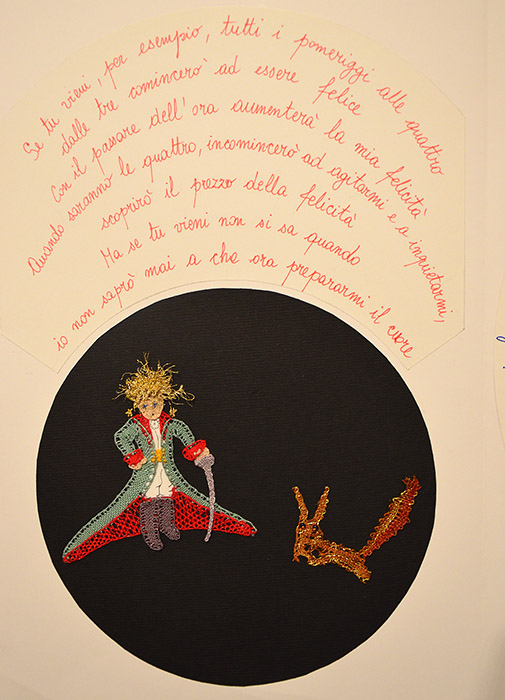 Se tu vieni, per esempio, tutti i pomeriggi alle quattro
dalle tre comincerò ad essere felice
Con il passare dell'ora aumenterà la mia felicità
Quando saranno le quattro, incomincerò ad agitarmi e a inquietarmi,
scoprirò il prezzo della felicità
Ma se tu vieni non si sa quando
io non saprò mai a che ora prepararmi il cuore